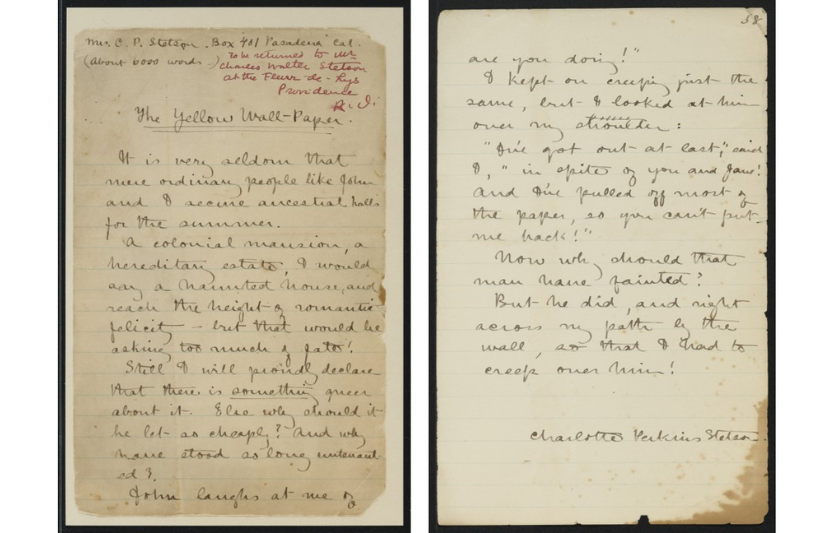 Mrs. C. P. Stetson. Box 401 Pasadena Cal.
(About 6000 words -)
To be returned to Mr.
Charles Walter Stetson
at the Fleur-de-Lys
Providence
R.I.
The Yellow Wall-Paper.
It is very seldom that
mere ordinary people like John
and I secure ancestral halls
for the summer.
A colonial mansion, a
hereditary estate, I would
say a haunted house, and
reach the height of romantic
felicity - but that would be
asking too much of fate!
Still I will proudly declare
that there is something queer
about it. Else why should it
be let so cheaply? And why
have stood so long untenant
ed?
John laughs at me of
58
are you doing!"
I kept on creeping just the
same, but I looked at him
over my shoulder:
"I've got out at last," said
I, "in spite of you and Jane!
And I've pulled off most of
the paper, so you can't put
me back!"
Now why should that
man have fainted?
But he did, and right
across my path by the
wall, so that I had to
creep over him!
Charlotte Perkins Stetson.